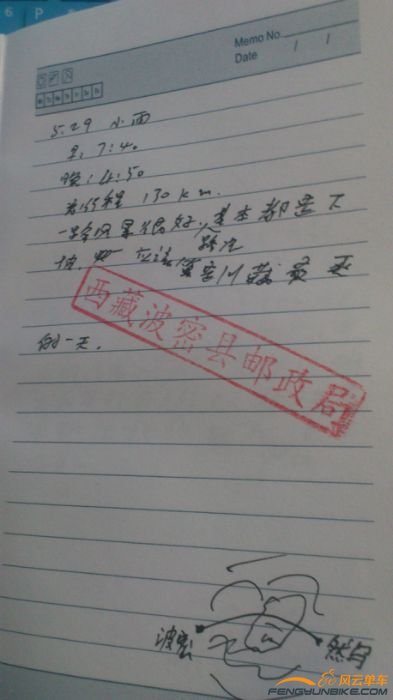 6 P
Memo No.
Date / /
5.29 小雨
早:7:40
晚:4:50
总行程 130 km.
一路风景很好,基本都是下
坡,应该 路况 川藏最
的一天.
西藏波密县邮政局
波密
然乌
风云单车
FENGYUNBIKE.COM